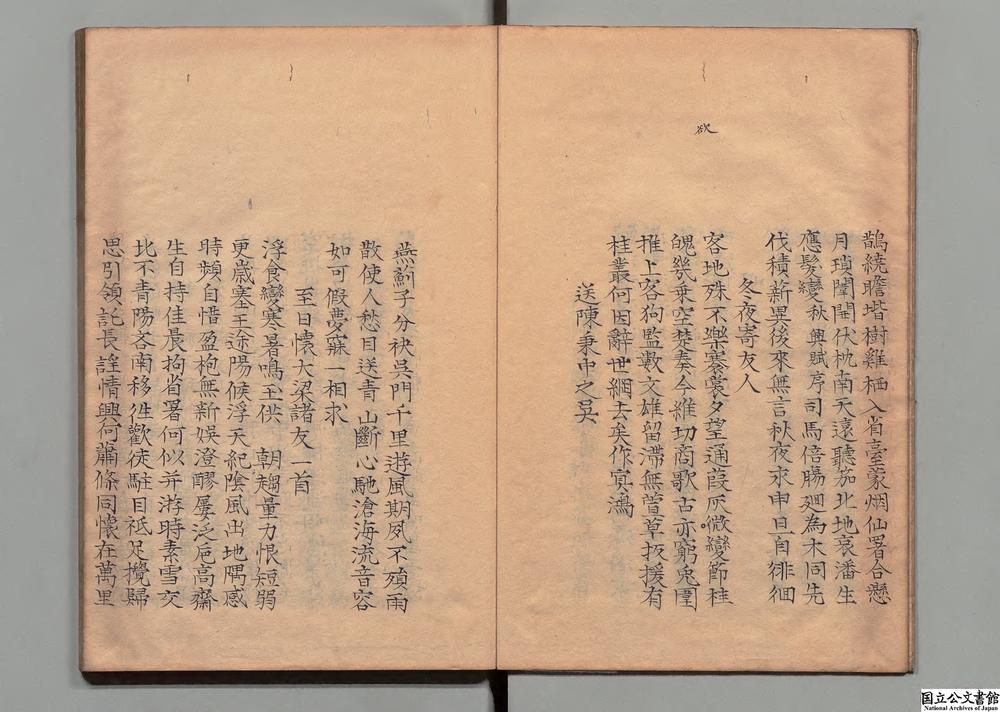 欲
鵲繞瞻堦樹雞栖入省臺蒙烟仙署合懸
月瑣闈開伏枕南天遠聽笳北地哀潘生
應髮變秋興賦序司馬倍腸廻為木同先
伐積薪異後來無言秋夜永申旦自徘徊
冬夜寄友人
客地殊不樂褰裳夕望通葭灰微變節桂
魄幾乗空楚奏今維切商歌古亦窮兎園
推上客狗監數文雄留滯無萱草扳援有
桂叢何因辭世網去矣作冥鴻
送陳秉中之吳
燕薊子分袂吳門千里遊風期夙不殞雨
散使人愁目送青山斷心馳滄海流音容
如可假夢寐一相求
至日懷大梁諸友一首
浮食變寒暑鳴玉供朝趨量力恨短弱
更歲塞王途陽候浮天紀陰風出地隅感
時頻自惜盈枹無新娛澄醪屢泛卮高齋
生自持佳晨拘省署何似并游時素雪交
北不青陽吝南移徃歡徒駐目祗足攬歸
思引領託長謠情興何蕭條同懷在萬里
国立公文書館
National Archives of Japan